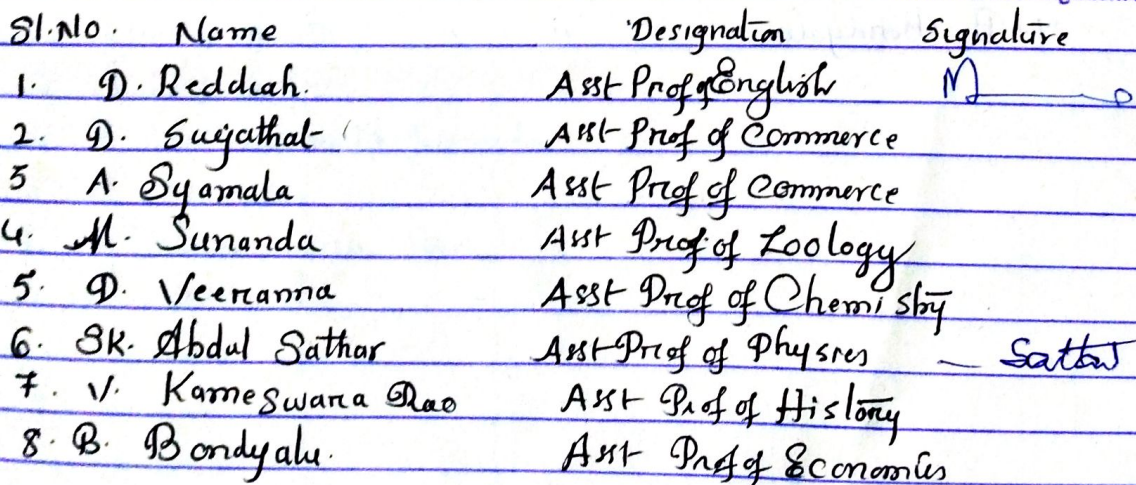 Sl.No. Name Designation Signature
1. D. Reddiah. Asst Prof of English
2. D. Sujathal Asst Prof of Commerce
3 A. Syamala Asst Prof of Commerce
4. M. Sunanda Asst Prof of Zoology
5. D. Veeranna Asst Prof of Chemistry
6. SK. Abdul Sathar Asst Prof of Physics Sattar
7. V. Kameswara Rao Asst Prof of History
8. B. Bondyalu. Asst Prof of Economics